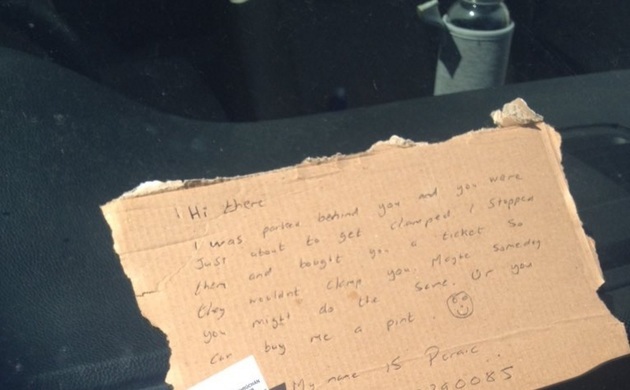 Hi there
I was parked behind you and you were
Just about to get clamped I stopped
them and bought you a ticket so
they wouldnt clamp you. Maybe someday
you might do the same. Or you
can buy me a pint.
My name is Peraic.
290085